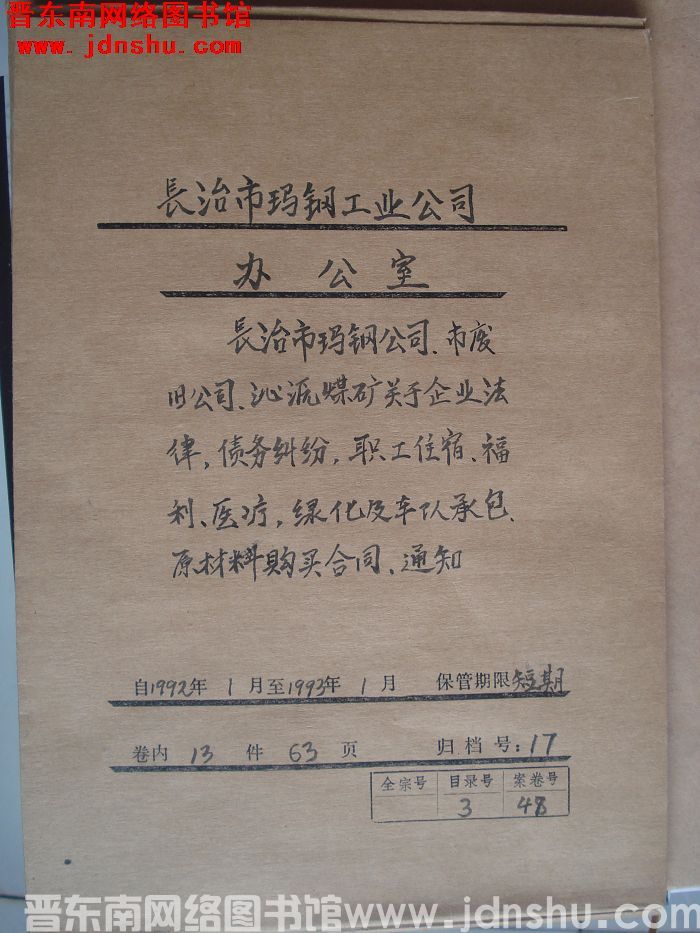 晋东南网络图书馆
www.jdnshu.com
長治市玛钢工业公司
办公室
長治市玛钢公司、市废
旧公司、沁源煤矿关于企业法
律,债务纠纷,职工住宿、福
利、医疗,绿化及车队承包、
原材料购买合同、通知
自1992年1月至1993年1月 保管期限短期
卷内13件63页 归档号:17
全宗号 目录号 案卷号
3 48
晋东南网络图书馆www.jdnshu.com